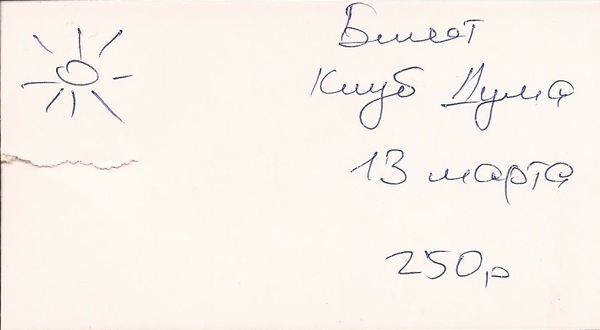 Билет
Клуб Дума
13 марта
250р